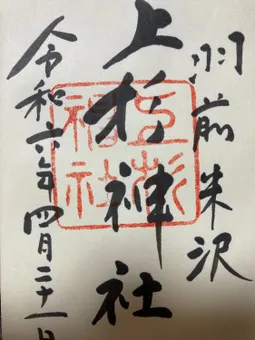 羽前米沢
上杉神社
上彰神社
令和六年四月二十一日